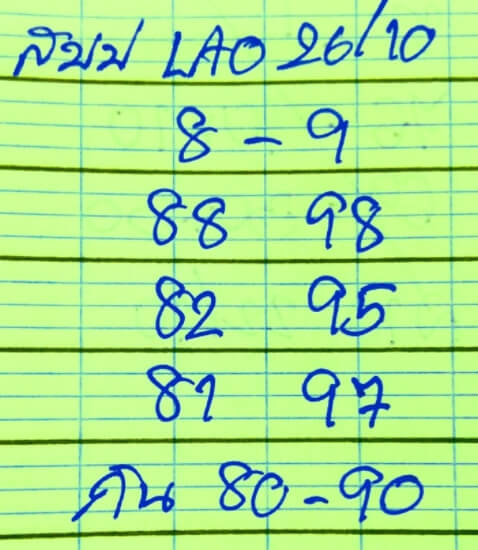 สปป LAO 26/10
8 - 9
88 98
82 95
81 97
กัน 80 - 90